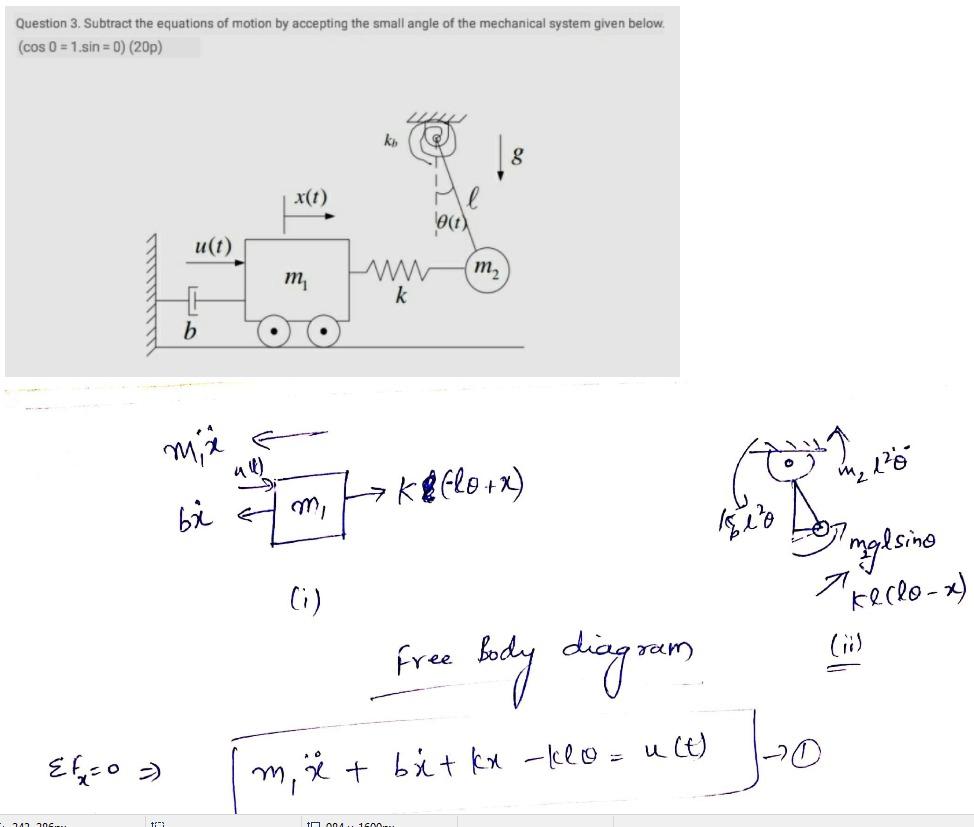 Question 3. Subtract the equations of motion by accepting the small angle of the mechanical system given below.
(cos 0 = 1.sin = 0) (20p)
k_b
g
x(t)
ℓ
θ(t)
u(t)
m₁
m₂
k
b
m₁ẍ
u(t)
bẋ
m₁
k(-lθ+x)
(i)
m₂l²θ̈
k_b l²θ
m₂glsinθ
kl(lθ-x)
(ii)
Free Body diagram
Σfₓ=0 ⇒ m₁ẍ + bẋ + kx - klθ = u(t) → ①